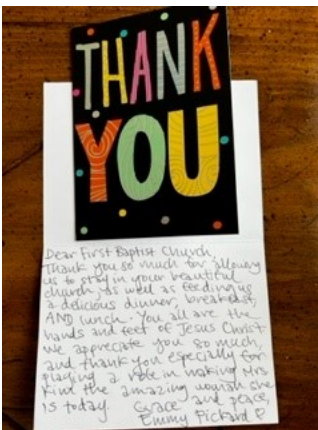 THANK
YOU
Dear First Baptist Church,
Thank you so much for allowing
us to stay in your beautiful
church, as well as feeding us
a delicious dinner, breakfast,
AND lunch. You all are the
hands and feet of Jesus Christ.
We appreciate you so much,
and thank you especially for
playing a role in making Mrs
Kind the amazing woman she
is today. Grace and peace,
Emmy Pickard